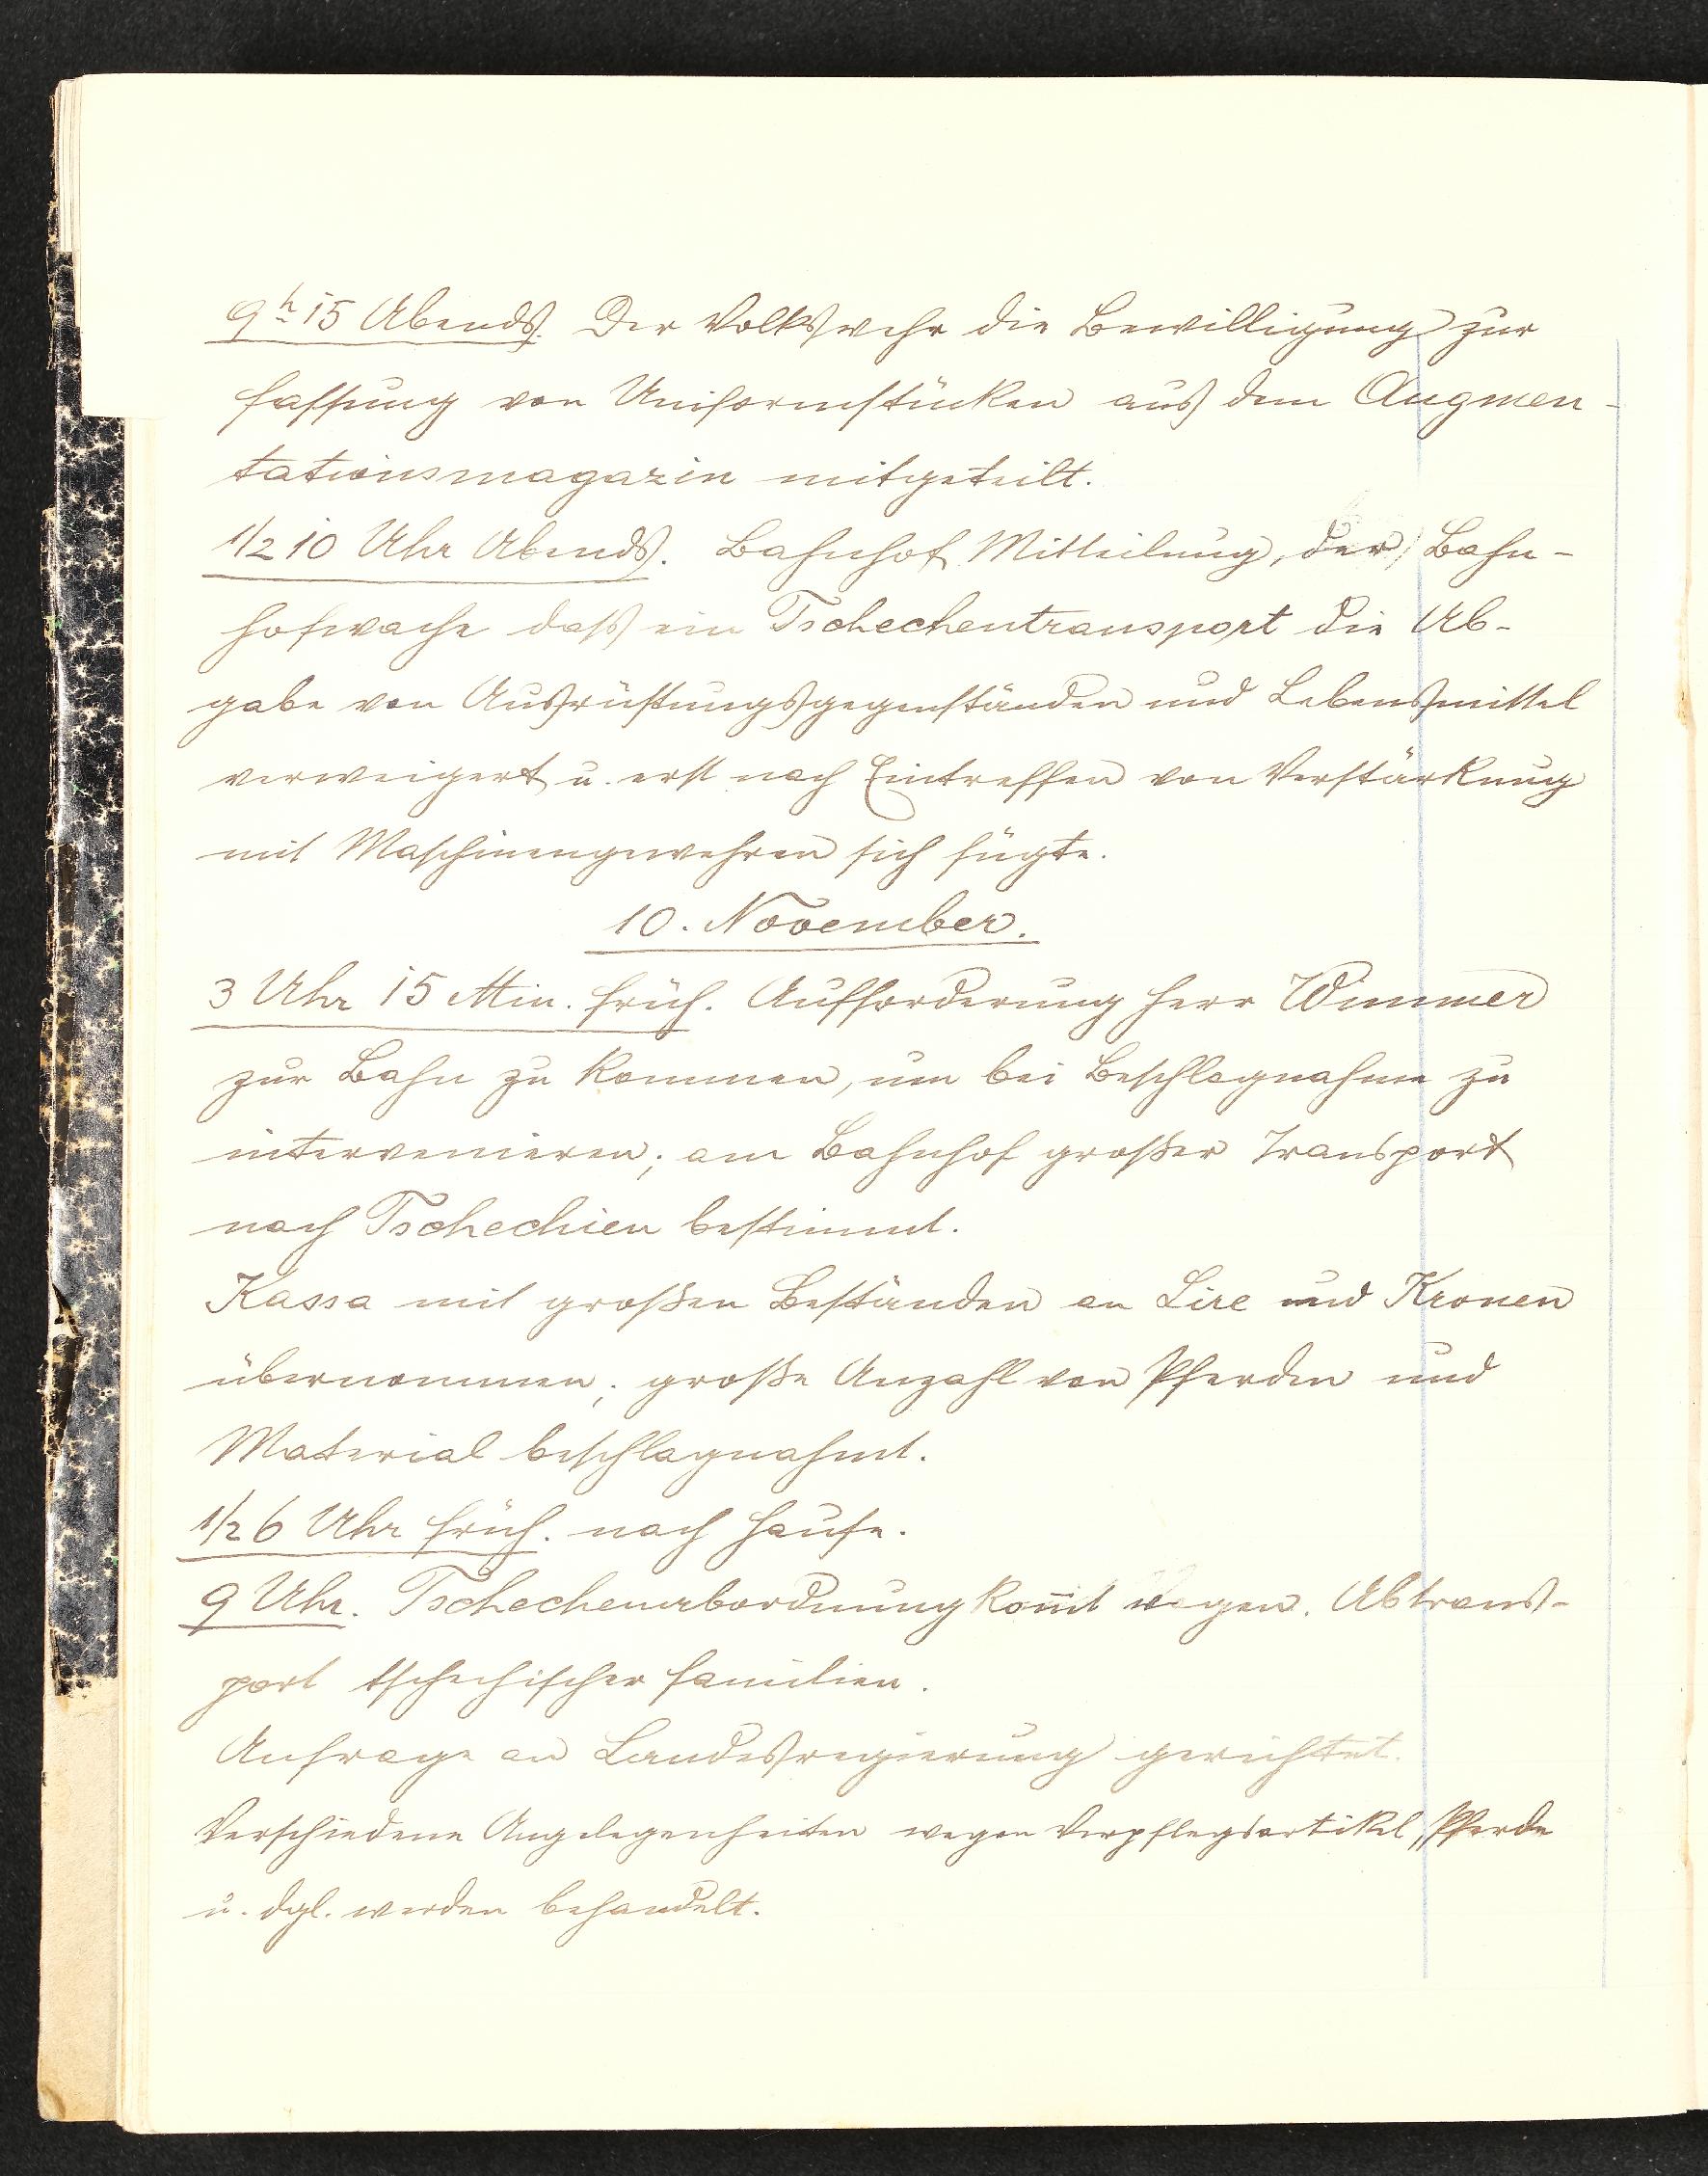 9h 15 Abends. Der Volkswehr die Bewilligung zur
Fassung von Uniformstücken aus dem Augmen-
tationsmagazin mitgeteilt.
1/2 10 Uhr Abends. Bahnhof Mitteilung, der Bahn-
hofwache daß ein Tschechentransport die Ab-
gabe von Ausrüstungsgegenständen und Lebensmittel
verweigert u. erst nach Eintreffen von Verstärkung
mit Maschinengewehren sich fügte.
10. November.
3 Uhr 15 Min. früh. Aufforderung Herr Wimmer
zur Bahn zu kommen, um bei Beschlagnahme zu
intervenieren; am Bahnhof großer Transport
nach Tschechien bestimmt.
Kassa mit großen Beständen an Lire und Kronen
übernommen; große Anzahl von Pferden und
Material beschlagnahmt.
1/2 6 Uhr früh. nach Hause.
9 Uhr. Tschechenabordnung kom̅t wegen. Abtrans-
port tschechischer Familien.
Anfrage an Landesregierung gerichtet.
Verschiedene Angelegenheiten wegen Verpflegsartikel, Pferde
u. dgl. werden behandelt.